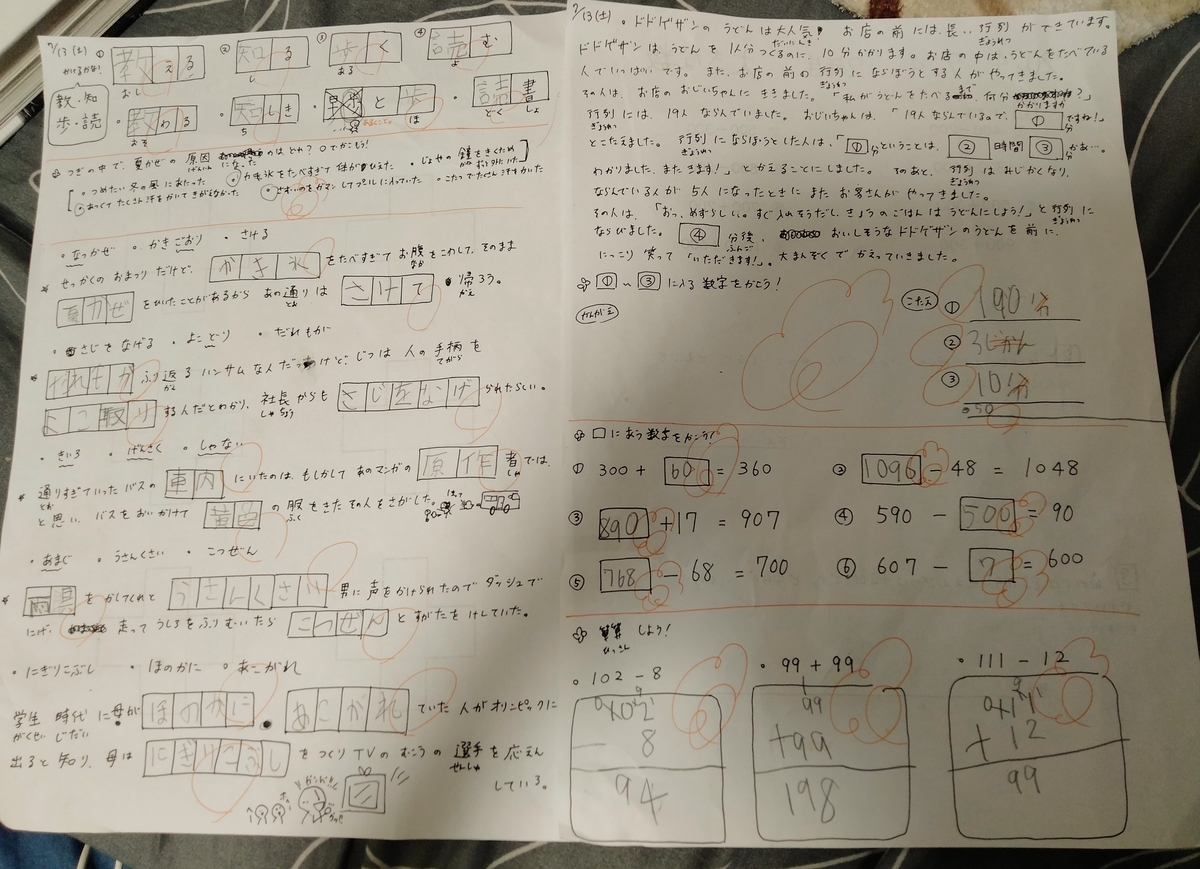 7/13(土)
かけるかな!
教・知
歩・読
① 教える
おし
② 知る
し
③ 歩く
ある
④ 読む
よ
・教わる
おそ
・知しき
ち
・と歩
ほ
・読書
どく しょ
つぎの中で、夏かぜの原因になったのはどれ?○でかこう!
げんいん
・つめたい冬の風にあたった
・かき氷をたべすぎて体がひえた
・じょやの鐘をきくため
・あつくてたくさん汗をかいてきがえなかった
・こたつでたくさん汗をかいた
・なつかぜ ・かきごおり ・さける
せっかくのおまつりだけど、かき氷をたべすぎてお腹をこわして、そのまま
なか
夏かぜをひいたことがあるからあの通りはさけて帰ろう。
とお かえ
・さじをなげる ・よこどり ・だれもが
だれもがふり返るハンサムな人だったけど、じつは人の手柄を
かえ てがら
よこ取りする人だとわかり、社長からもさじをなげられたらしい。
しゃちょう
・きいろ ・げんさく ・しゃない
通りすぎていったバスの車内にいたのは、もしかしてあのマンガの原作者では、
とお しゃ
と思い、バスをおいかけて黄色の服をきたその人をさがした。
ふく
・あまぐ ・うさんくさい ・こつぜん
雨具をかしてくれとうさんくさい男に声をかけられたのでダッシュで
にげ、走ってうしろをふりむいたらこつぜんとすがたをけしていた。
・にぎりこぶし ・ほのかに ・あこがれ
学生時代に母がほのかにあこがれていた人がオリンピックに
がくせい じだい
出ると知り、母はにぎりこぶしをつくりTVのむこうの選手を応えん
せんしゅ
している。
7/13(土) ・ドドゲザンのうどんは大人気! お店の前には、長い行列ができています。
だいにんき ぎょうれつ
ドドゲザンは、うどんを1人分つくるのに、10分かかります。お店の中は、うどんをたべている
人でいっぱいです。また、お店の前の行列にならぼうとする人がやってきました。
ぎょうれつ
その人は、お店のおじいちゃんにききました。「私がうどんをたべるまで何分かかりますか?」
行列には、19人ならんでいました。おじいちゃんは、「19人ならんでいるので、①分ですね!」
ぎょうれつ
とこたえました。行列にならぼうとした人は、「①分ということは、②時間③分かあ…。
ぎょうれつ
わかりました、またきます!」とかえることにしました。そのあと、行列はみじかくなり、
ぎょうれつ
ならんでいる人が5人になったときにまたお客さんがやってきました。
その人は、「おっ、めずらしい。すぐ入れそうだし、きょうのごはんはうどんにしよう!」と行列に
ぎょうれつ
ならびました。④分後、おいしそうなドドゲザンのうどんを前に、
ふんご
にっこり笑って「いただきます!」。大まんぞくでかえっていきました。
①~③に入る数字をかこう!
かんがえ
こたえ
① 190分
② 3じかん
③ 10分
50
□にあう数字をかこう!
① 300 + 60 = 360
② 1096 - 48 = 1048
③ 890 + 17 = 907
④ 590 - 500 = 90
⑤ 768 - 68 = 700
⑥ 607 - 7 = 600
筆算しよう!
ひっさん
・102 - 8
102
- 8
94
・99 + 99
99
+99
198
・111 - 12
111
+12
99